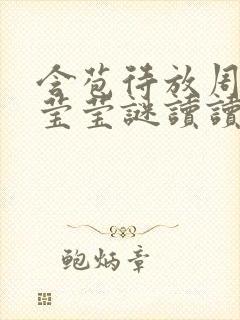 含苞待放周
莹莹謎讀讀
鲍炳章